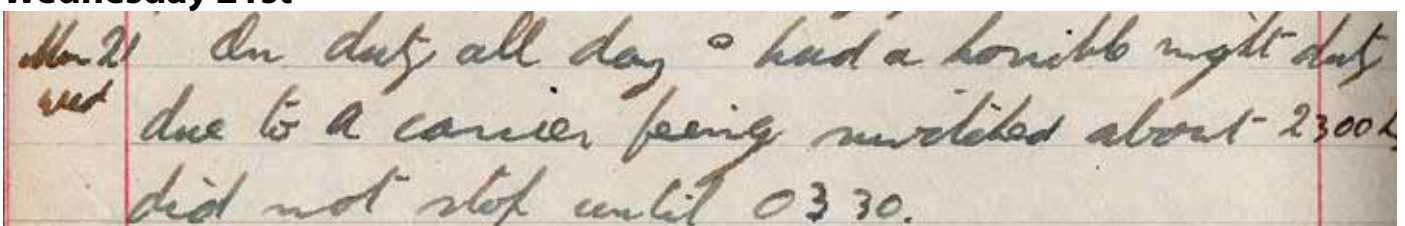 Wednesday 21st
Mar 21 On duty all day & had a horrible night duty
Wed due to a carrier being about 2300h
did not stop until 0330.